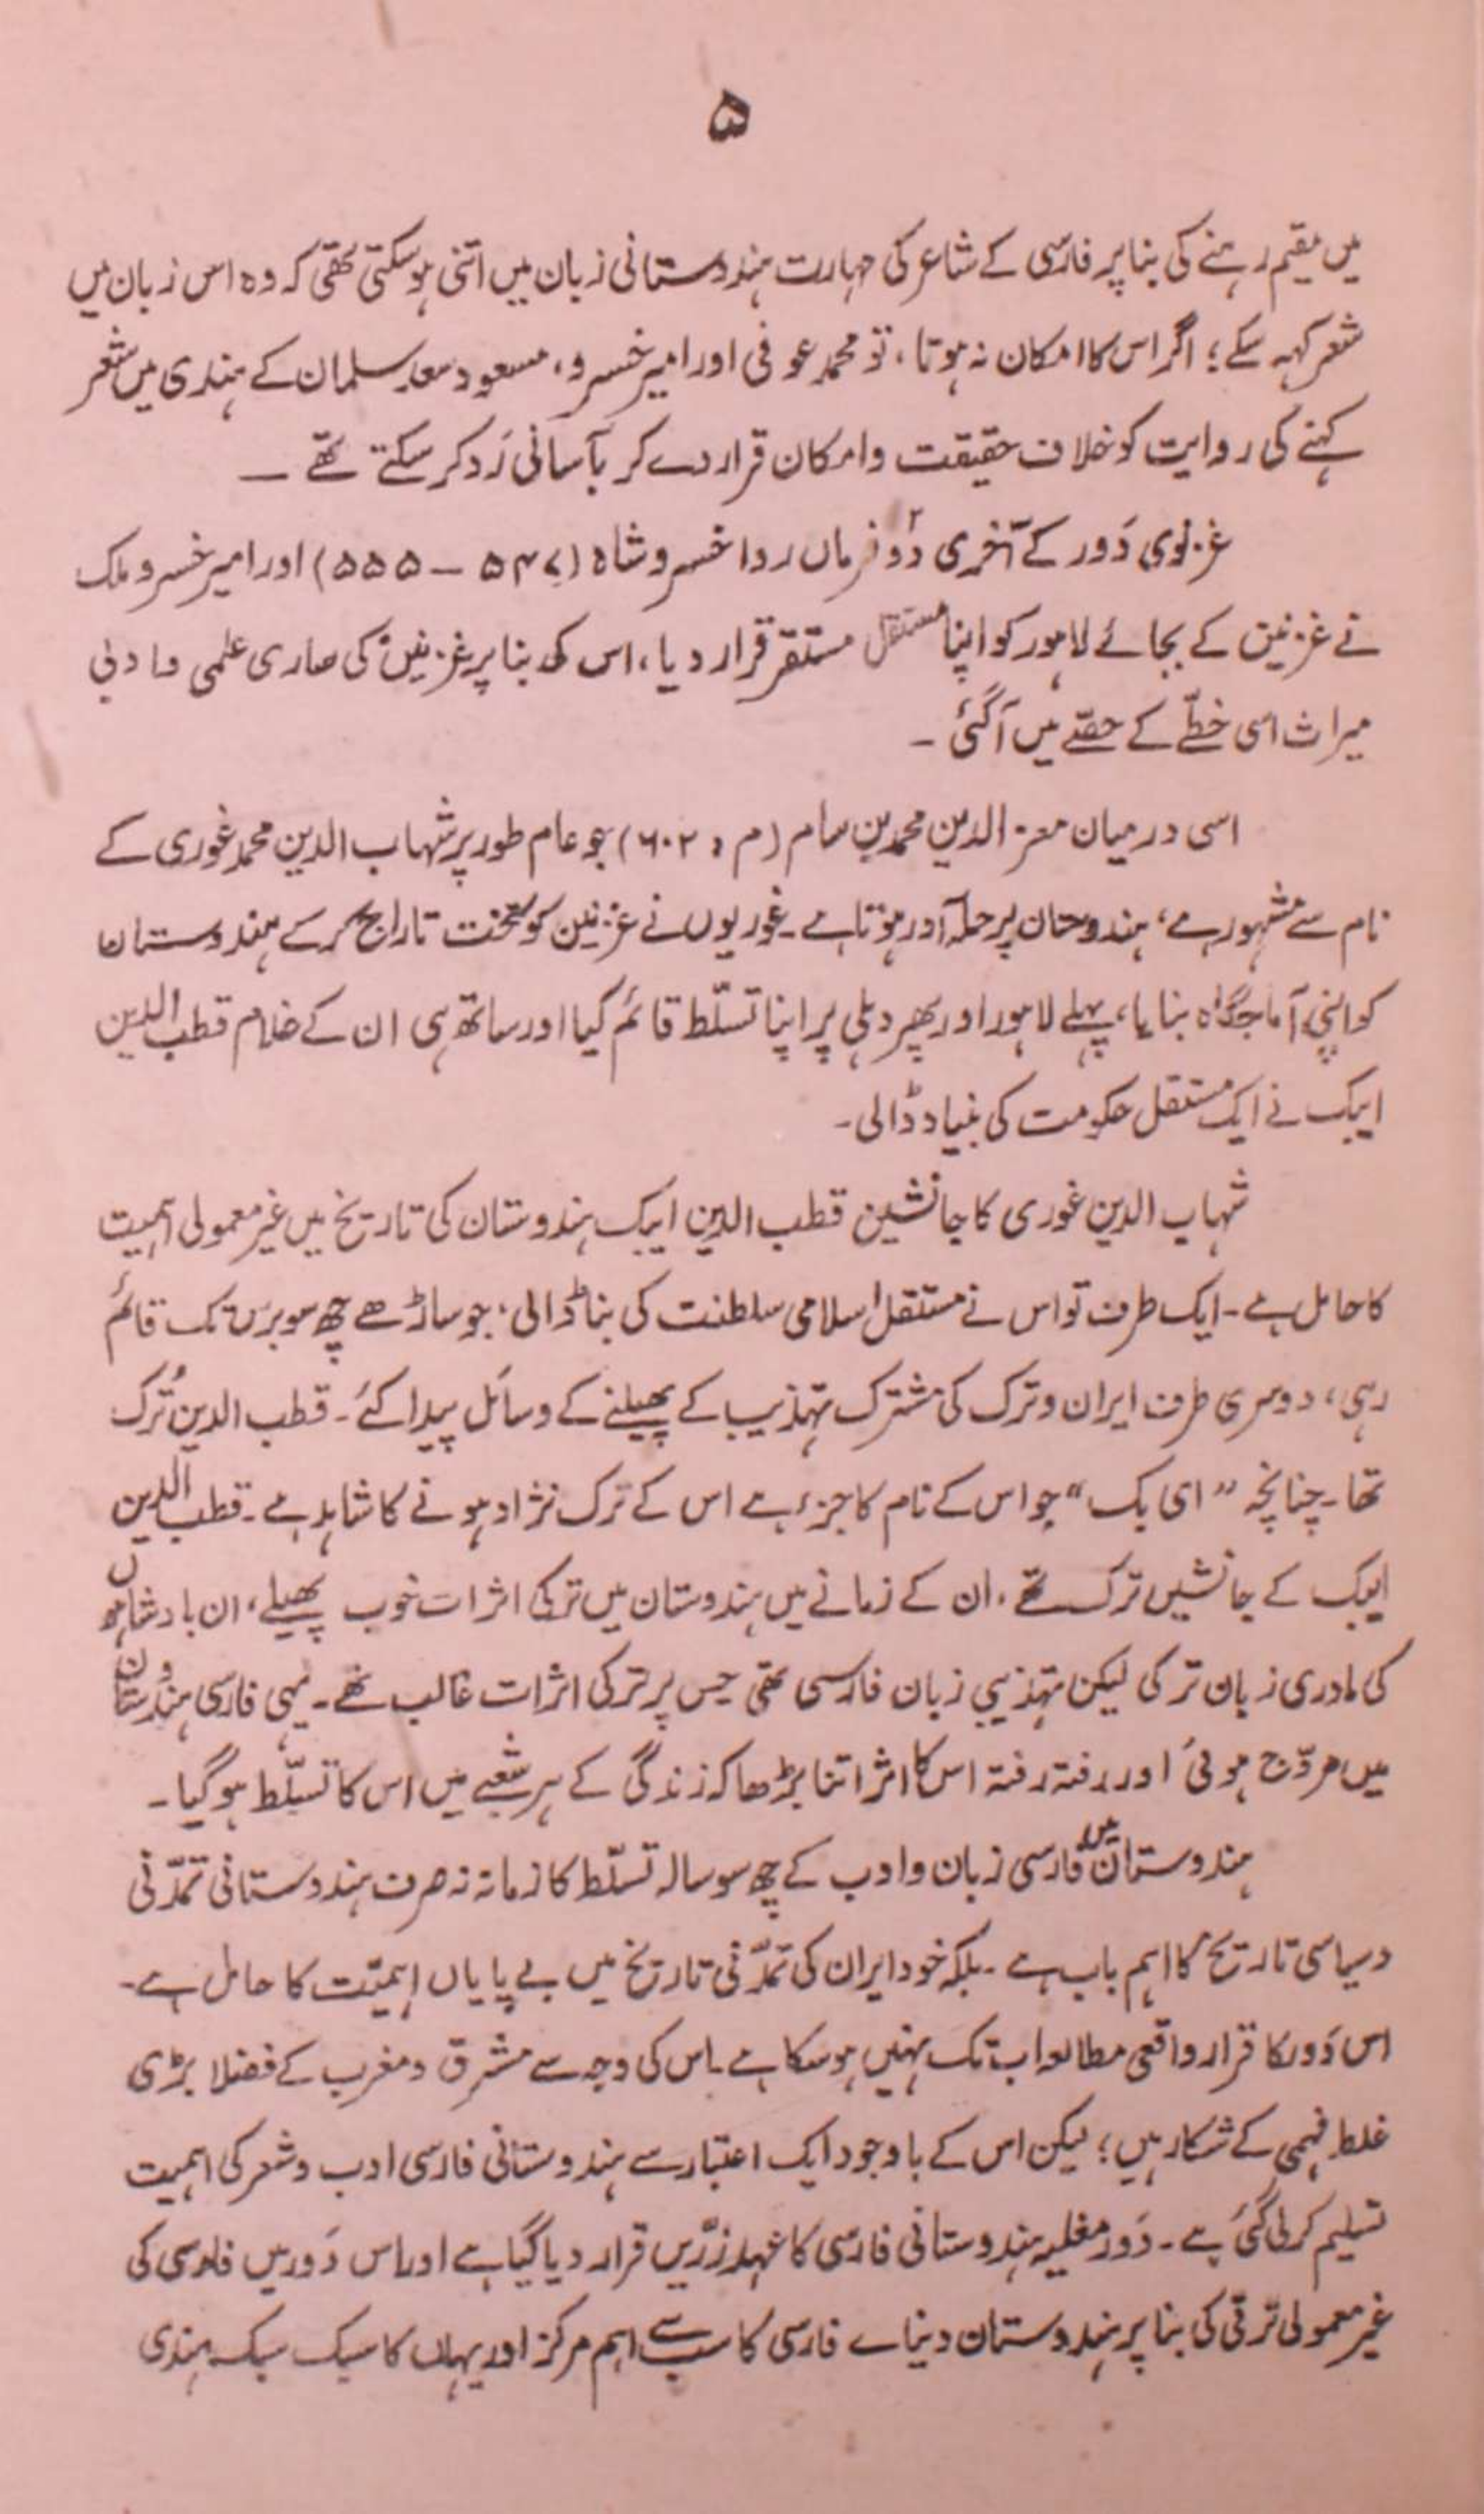 ۵
میں مقیم رہنے کی بنا پر فارسی کے شاعر کی مہارت ہندوستانی زبان میں اتنی ہو سکتی تھی کہ وہ اس زبان میں
شعر کہہ سکے؛ اگر اس کا امکان نہ ہوتا، تو محمد عوفی اور امیر خسرو، مسعود سعد سلمان کے ہندی میں شعر
کہنے کی روایت کو خلاف حقیقت و امکان قرار دے کر بآسانی رَد کر سکتے تھے ۔
غزنوی دَور کے آخری دو فرماں روا خسرو شاہ (۵۴۷ – ۵۵۵) اور امیر خسرو ملک
نے غزنین کے بجائے لاہور کو اپنا مستقل مستقر قرار دیا، اس کی بنا پر غزنین کی ساری علمی و ادبی
میراث اسی خطّے کے حصّے میں آگئی ۔
اسی درمیان معز الدین محمد بن سام (م : ۶۰۲) جو عام طور پر شہاب الدین محمد غوری کے
نام سے مشہور ہے، ہندوستان پر حملہ آور ہوتا ہے۔ غوریوں نے غزنین کو تخت تاراج کرکے ہندوستان
کو اپنی آماجگاہ بنایا، پہلے لاہور اور پھر دہلی پر اپنا تسلّط قائم کیا اور ساتھ ہی ان کے غلام قطب الدین
ایبک نے ایک مستقل حکومت کی بنیاد ڈالی۔
شہاب الدین غوری کا جانشین قطب الدین ایبک ہندوستان کی تاریخ میں غیر معمولی اہمیت
کا حامل ہے۔ ایک طرف تو اس نے مستقل اسلامی سلطنت کی بنا ڈالی، جو ساڑھے چھ سو برس تک قائم
رہی، دوسری طرف ایران و ترک کی مشترک تہذیب کے پھیلنے کے وسائل پیدا کئے۔ قطب الدین تُرک
تھا۔ چنانچہ "ای بک" جو اس کے نام کا جزء ہے اس کے ترک نژاد ہونے کا شاہد ہے۔ قطب الدین
ایبک کے جانشیں ترک تھے، ان کے زمانے میں ہندوستان میں ترکی اثرات خوب پھیلے، ان بادشاہوں
کی مادری زبان ترکی لیکن تہذیبی زبان فارسی تھی جس پر ترکی اثرات غالب تھے۔ یہی فارسی ہندوستان
میں مروّج ہوئی اور رفتہ رفتہ اس کا اثر اتنا بڑھا کہ زندگی کے ہر شعبے میں اس کا تسلّط ہو گیا۔
ہندوستان میں فارسی زبان و ادب کے چھ سو سالہ تسلّط کا زمانہ نہ صرف ہندوستانی تمدّنی
و سیاسی تاریخ کا اہم باب ہے ۔ بلکہ خود ایران کی تمدّنی تاریخ میں بے پایاں اہمیّت کا حامل ہے۔
اس دَور کا قرار واقعی مطالعہ اب تک نہیں ہو سکا ہے۔ اس کی وجہ سے مشرق و مغرب کے فضلا بڑی
غلط فہمی کے شکار ہیں؛ لیکن اس کے باوجود ایک اعتبار سے ہندوستانی فارسی ادب و شعر کی اہمیت
تسلیم کر لی گئی ہے ۔ دَور مغلیہ ہندوستانی فارسی کا عہد زرّیں قرار دیا گیا ہے اور اس دَور میں فارسی کی
غیر معمولی ترقی کی بنا پر ہندوستان دنیاے فارسی کا سب سے اہم مرکز اور یہاں کا سبک سبک ہندی